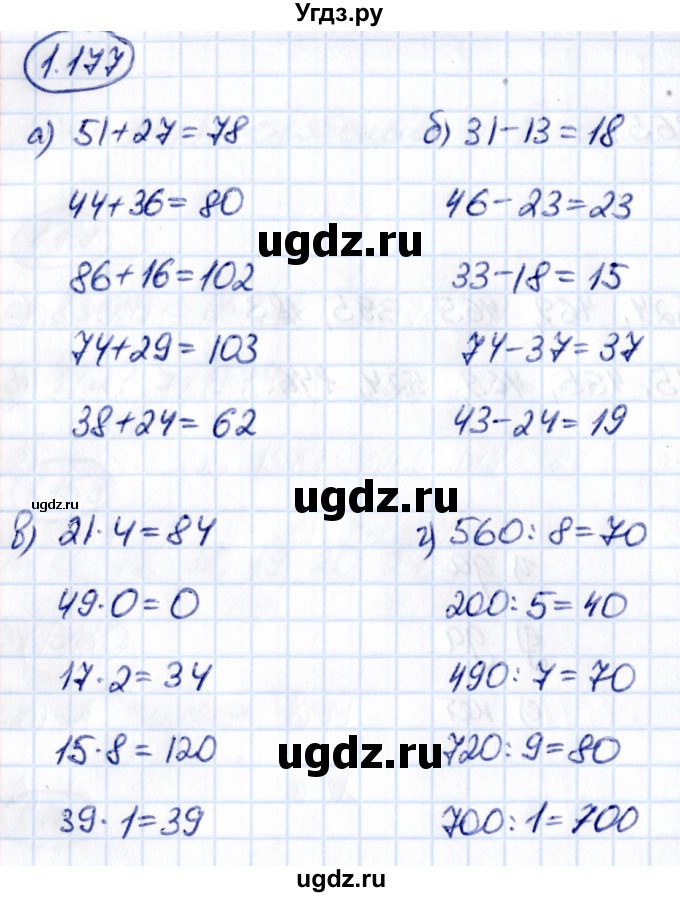 Угдз.ру
1.177
а) 51+27=78
44+36=80
86+16=102
74+29=103
38+24=62
б) 31-13=18
46-23=23
33-18=15
74-37=37
43-24=19
в) 21·4=84
49·0=0
17·2=34
15·8=120
39·1=39
г) 560:8=70
200:5=40
490:7=70
720:9=80
700:1=700
ugdz.ru
ugdz.ru
ugdz.ru
ugdz.ru
ugdz.ru